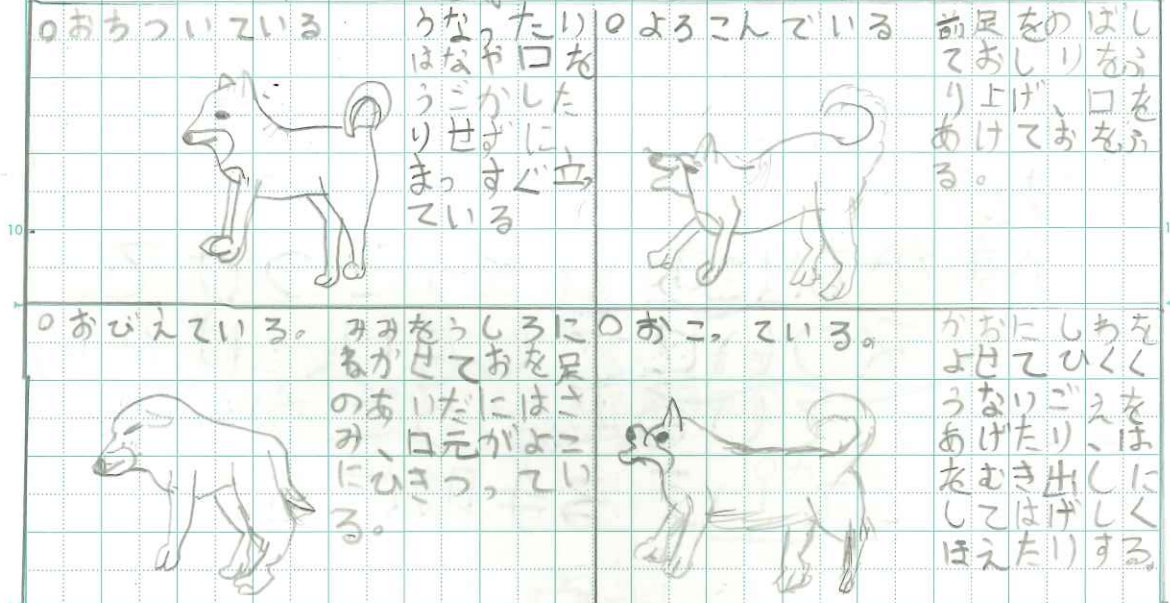 ○おちついている
うなったり
はなや口を
うごかした
りせずに、
まっすぐ立っ
ている
○よろこんでいる
前足をのばし
ておしりをふ
り上げ、口を
あけておをふ
る。
10
○おびえている。
みみをうしろに
ねかせておを足
のあいだにはさ
み、口元がよこ
にひきつってい
る。
○おこっている。
かおにしわを
よせてひくく
うなりごえを
あげたり、は
をむき出しに
してはげしく
ほえたりする。